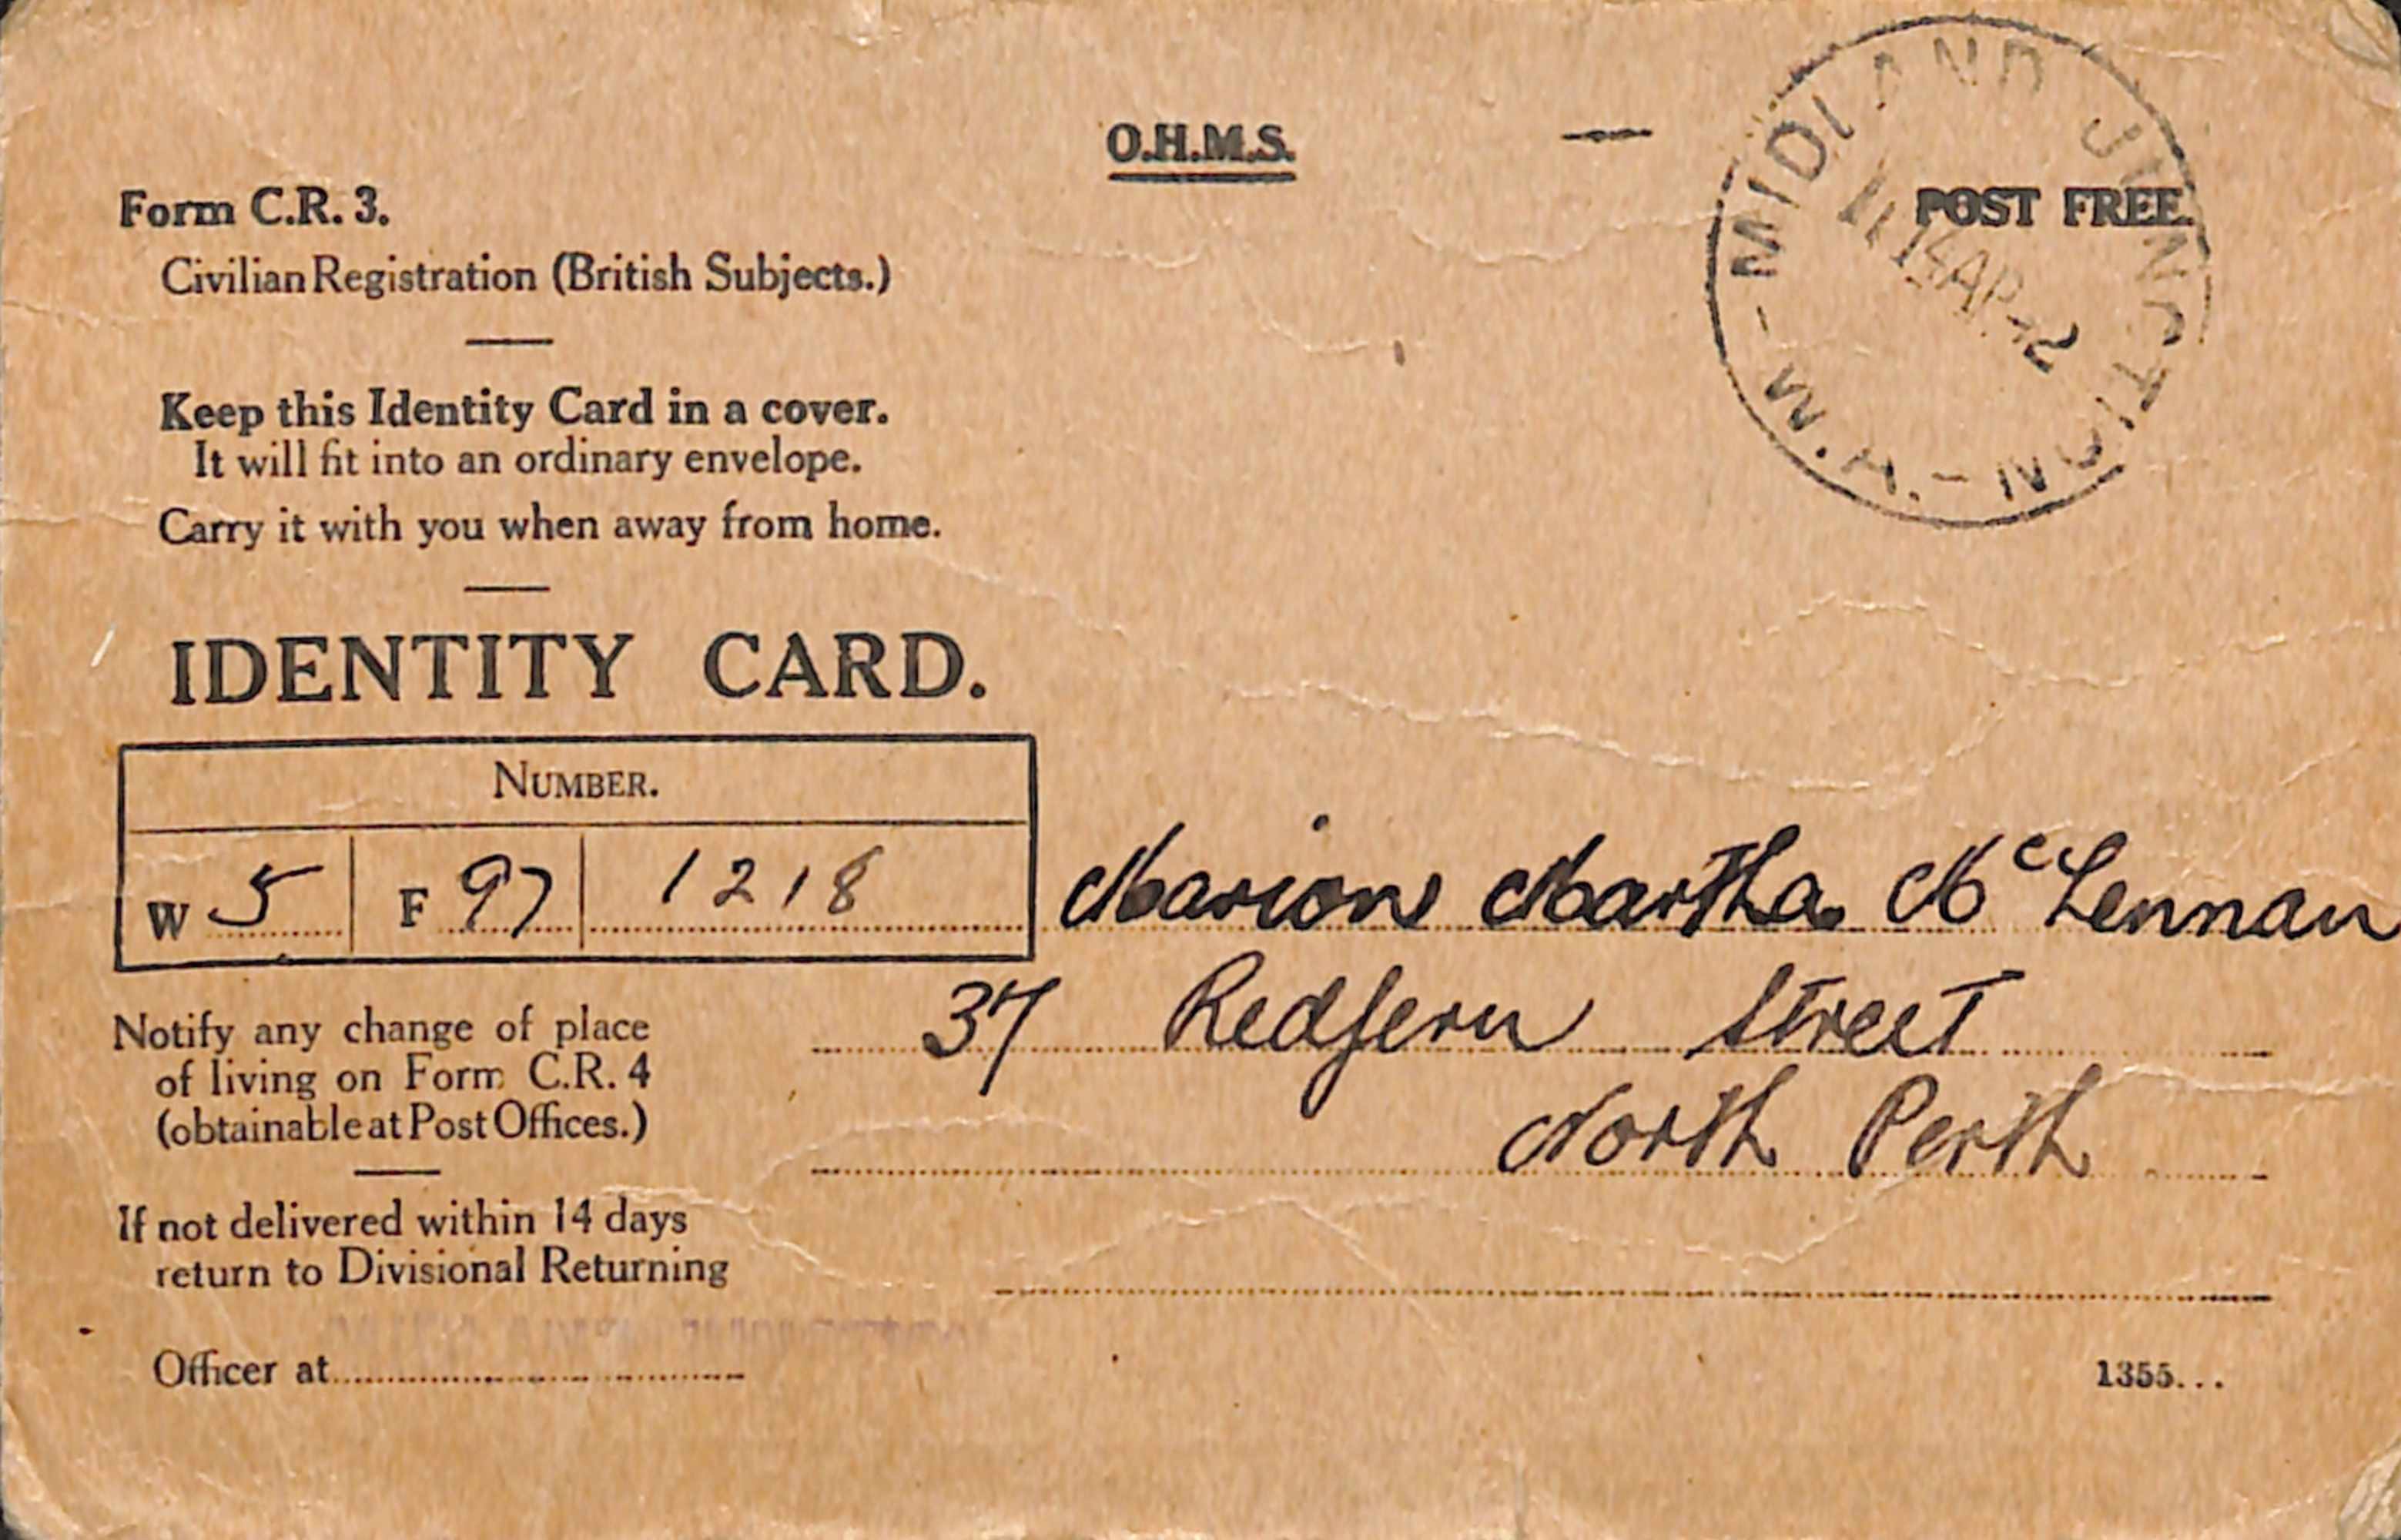 O.H.M.S.
MIDLAND JUNCTION - W.A. -
POST FREE.
Form C.R. 3.
Civilian Registration (British Subjects.)
Keep this Identity Card in a cover.
It will fit into an ordinary envelope.
Carry it with you when away from home.
IDENTITY CARD.
NUMBER.
W 5 F 97 1218
Marion Martha McLennan
37 Redfern Street
North Perth
Notify any change of place
of living on Form C.R. 4
(obtainable at Post Offices.)
If not delivered within 14 days
return to Divisional Returning
Officer at
1355...